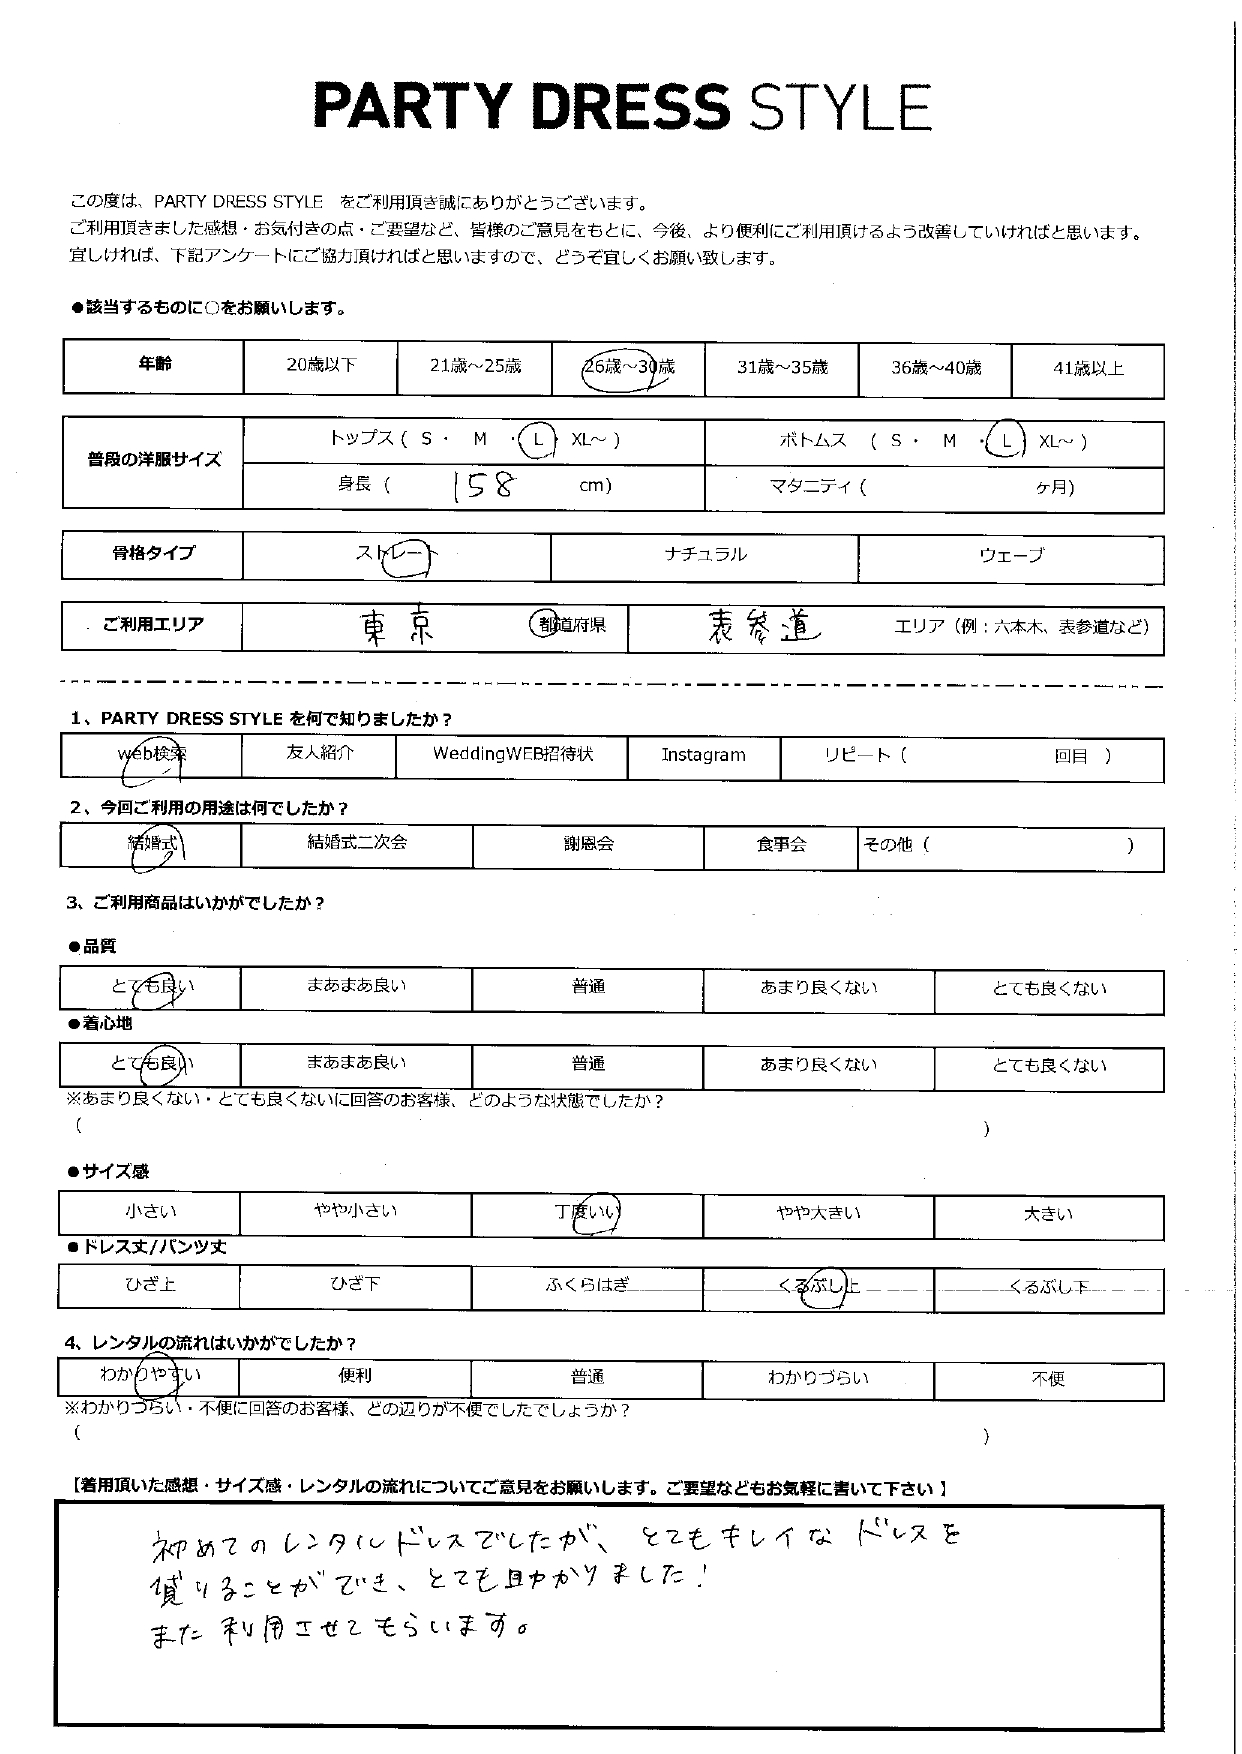 PARTY DRESS STYLE
この度は、PARTY DRESS STYLE をご利用頂き誠にありがとうございます。
ご利用頂きました感想・お気付きの点・ご要望など、皆様のご意見をもとに、今後、より便利にご利用頂けるよう改善していければと思います。
宜しければ、下記アンケートにご協力頂ければと思いますので、どうぞ宜しくお願い致します。
●該当するものに○をお願いします。
年齢 20歳以下 21歳～25歳 26歳～30歳 31歳～35歳 36歳～40歳 41歳以上
普段の洋服サイズ トップス ( S ・ M ・ L ・ XL～ ) ボトムス ( S ・ M ・ L ・ XL～ )
身長 ( 158 cm) マタニティ ( ヶ月)
骨格タイプ ストレート ナチュラル ウェーブ
ご利用エリア 東京 都道府県 表参道 エリア（例：六本木、表参道など）
1、PARTY DRESS STYLE を何で知りましたか？
web検索 友人紹介 WeddingWEB招待状 Instagram リピート ( 回目 )
2、今回ご利用の用途は何でしたか？
結婚式 結婚式二次会 謝恩会 食事会 その他 ( )
3、ご利用商品はいかがでしたか？
●品質
とても良い まあまあ良い 普通 あまり良くない とても良くない
●着心地
とても良い まあまあ良い 普通 あまり良くない とても良くない
※あまり良くない・とても良くないに回答のお客様、どのような状態でしたか？
( )
●サイズ感
小さい やや小さい 丁度いい やや大きい 大きい
●ドレス丈/パンツ丈
ひざ上 ひざ下 ふくらはぎ くるぶし上 くるぶし下
4、レンタルの流れはいかがでしたか？
わかりやすい 便利 普通 わかりづらい 不便
※わかりづらい・不便に回答のお客様、どの辺りが不便でしたでしょうか？
( )
【着用頂いた感想・サイズ感・レンタルの流れについてご意見をお願いします。ご要望などもお気軽に書いて下さい】
初めてのレンタルドレスでしたが、とてもキレイなドレスを
借りることができ、とても助かりました！
また利用させてもらいます。